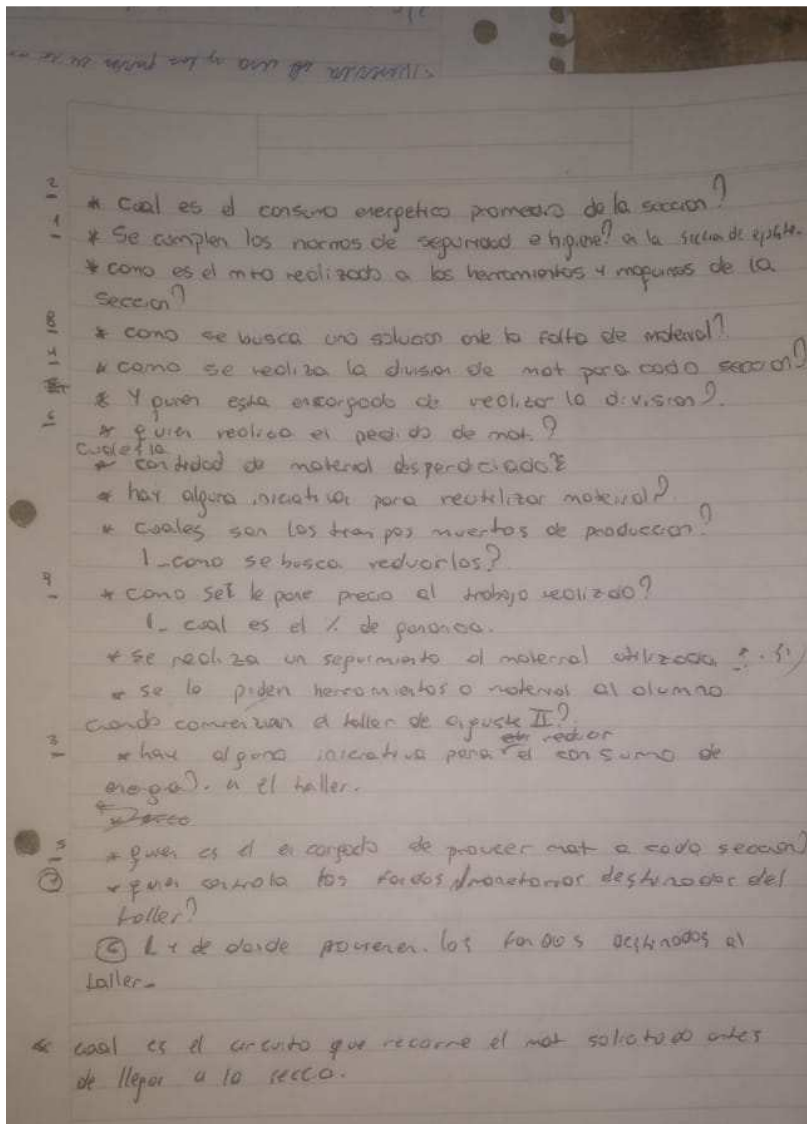 de uso y los
2 * Cual es el consumo energetico promedio de la seccion?
1 * Se cumplen los normas de seguridad e higiene? en la seccion de ajuste.
* como es el mto realizado a los herramientas y maquinas de la
seccion?
8 * como se busca una solucion ante la falta de material?
4 * como se realiza la division de mat para cada seccion?
* Y quien esta encargado de realizar la division?
6 * quien realiza el pedido de mat.?
Cual es la
* cantidad de material desperdiciado?
* hay alguna iniciativa para reutilizar material?
* cuales son los tiempos muertos de produccion?
1_ como se busca reducirlos?
9 * como se le pone precio al trabajo realizado?
1_ cual es el % de ganancia.
* se realiza un seguimiento al material utilizado
* se le piden herramientas o material al alumno
cuando comienzan el taller de ajuste II?
reducir
3 * hay alguna iniciativa para el consumo de
energia?. en el taller.
5 * quien es el encargado de proveer mat a cada seccion?
7 * quien controla los fondos monetarios destinados del
taller?
6 L Y de donde provienen. los fondos destinados al
taller_
* cual es el circuito que recorre el mat solicitado antes
de llegar a la secco.